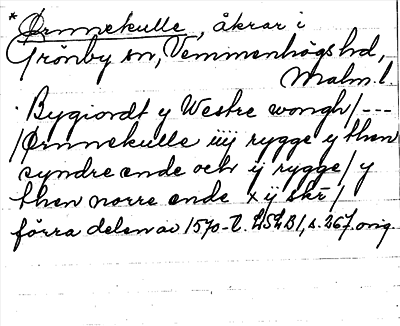 * Ørnnekulle, åkrar i
Grönby sn, Vemmenhögs hd,
Malm. l.
Bygiordt y Westre wongh / ---
/ Ørnnekulle iiij rygge y then
syndre ende och ij rygge / y
then norre ende x ij skr /
förra delen av 1570-t. LSLB 1, s. 267 orig.